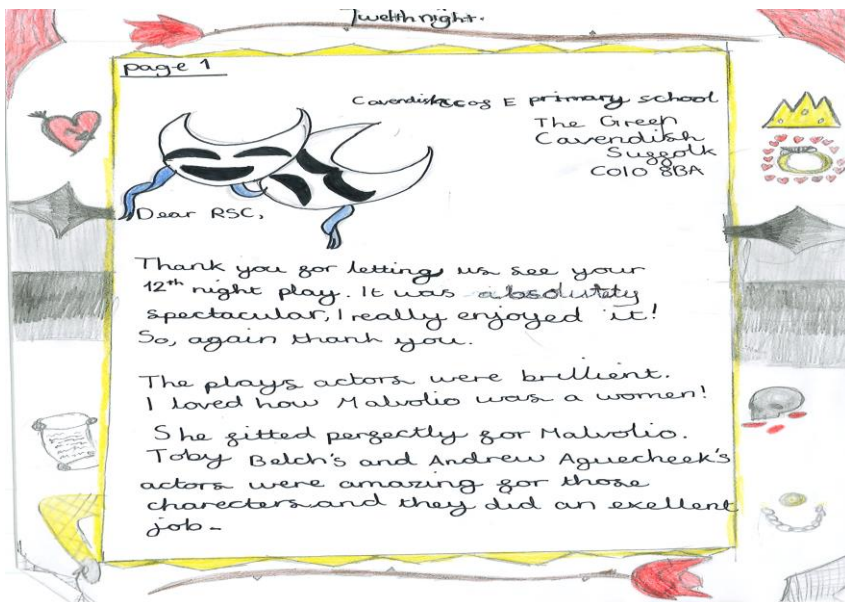 Twelth night.
page 1
Cavendish C of E primary school
The Green
Cavendish
Suffolk
CO10 8BA
Dear RSC,
Thank you for letting us see your
12th night play. It was absolutely
spectacular, I really enjoyed it!
So, again thank you.
The plays actors were brillient.
I loved how Malvolio was a women!
She fitted perfectly for Malvolio.
Toby Belch's and Andrew Aguecheek's
actors were amazing for those
charecters and they did an exellent
job.